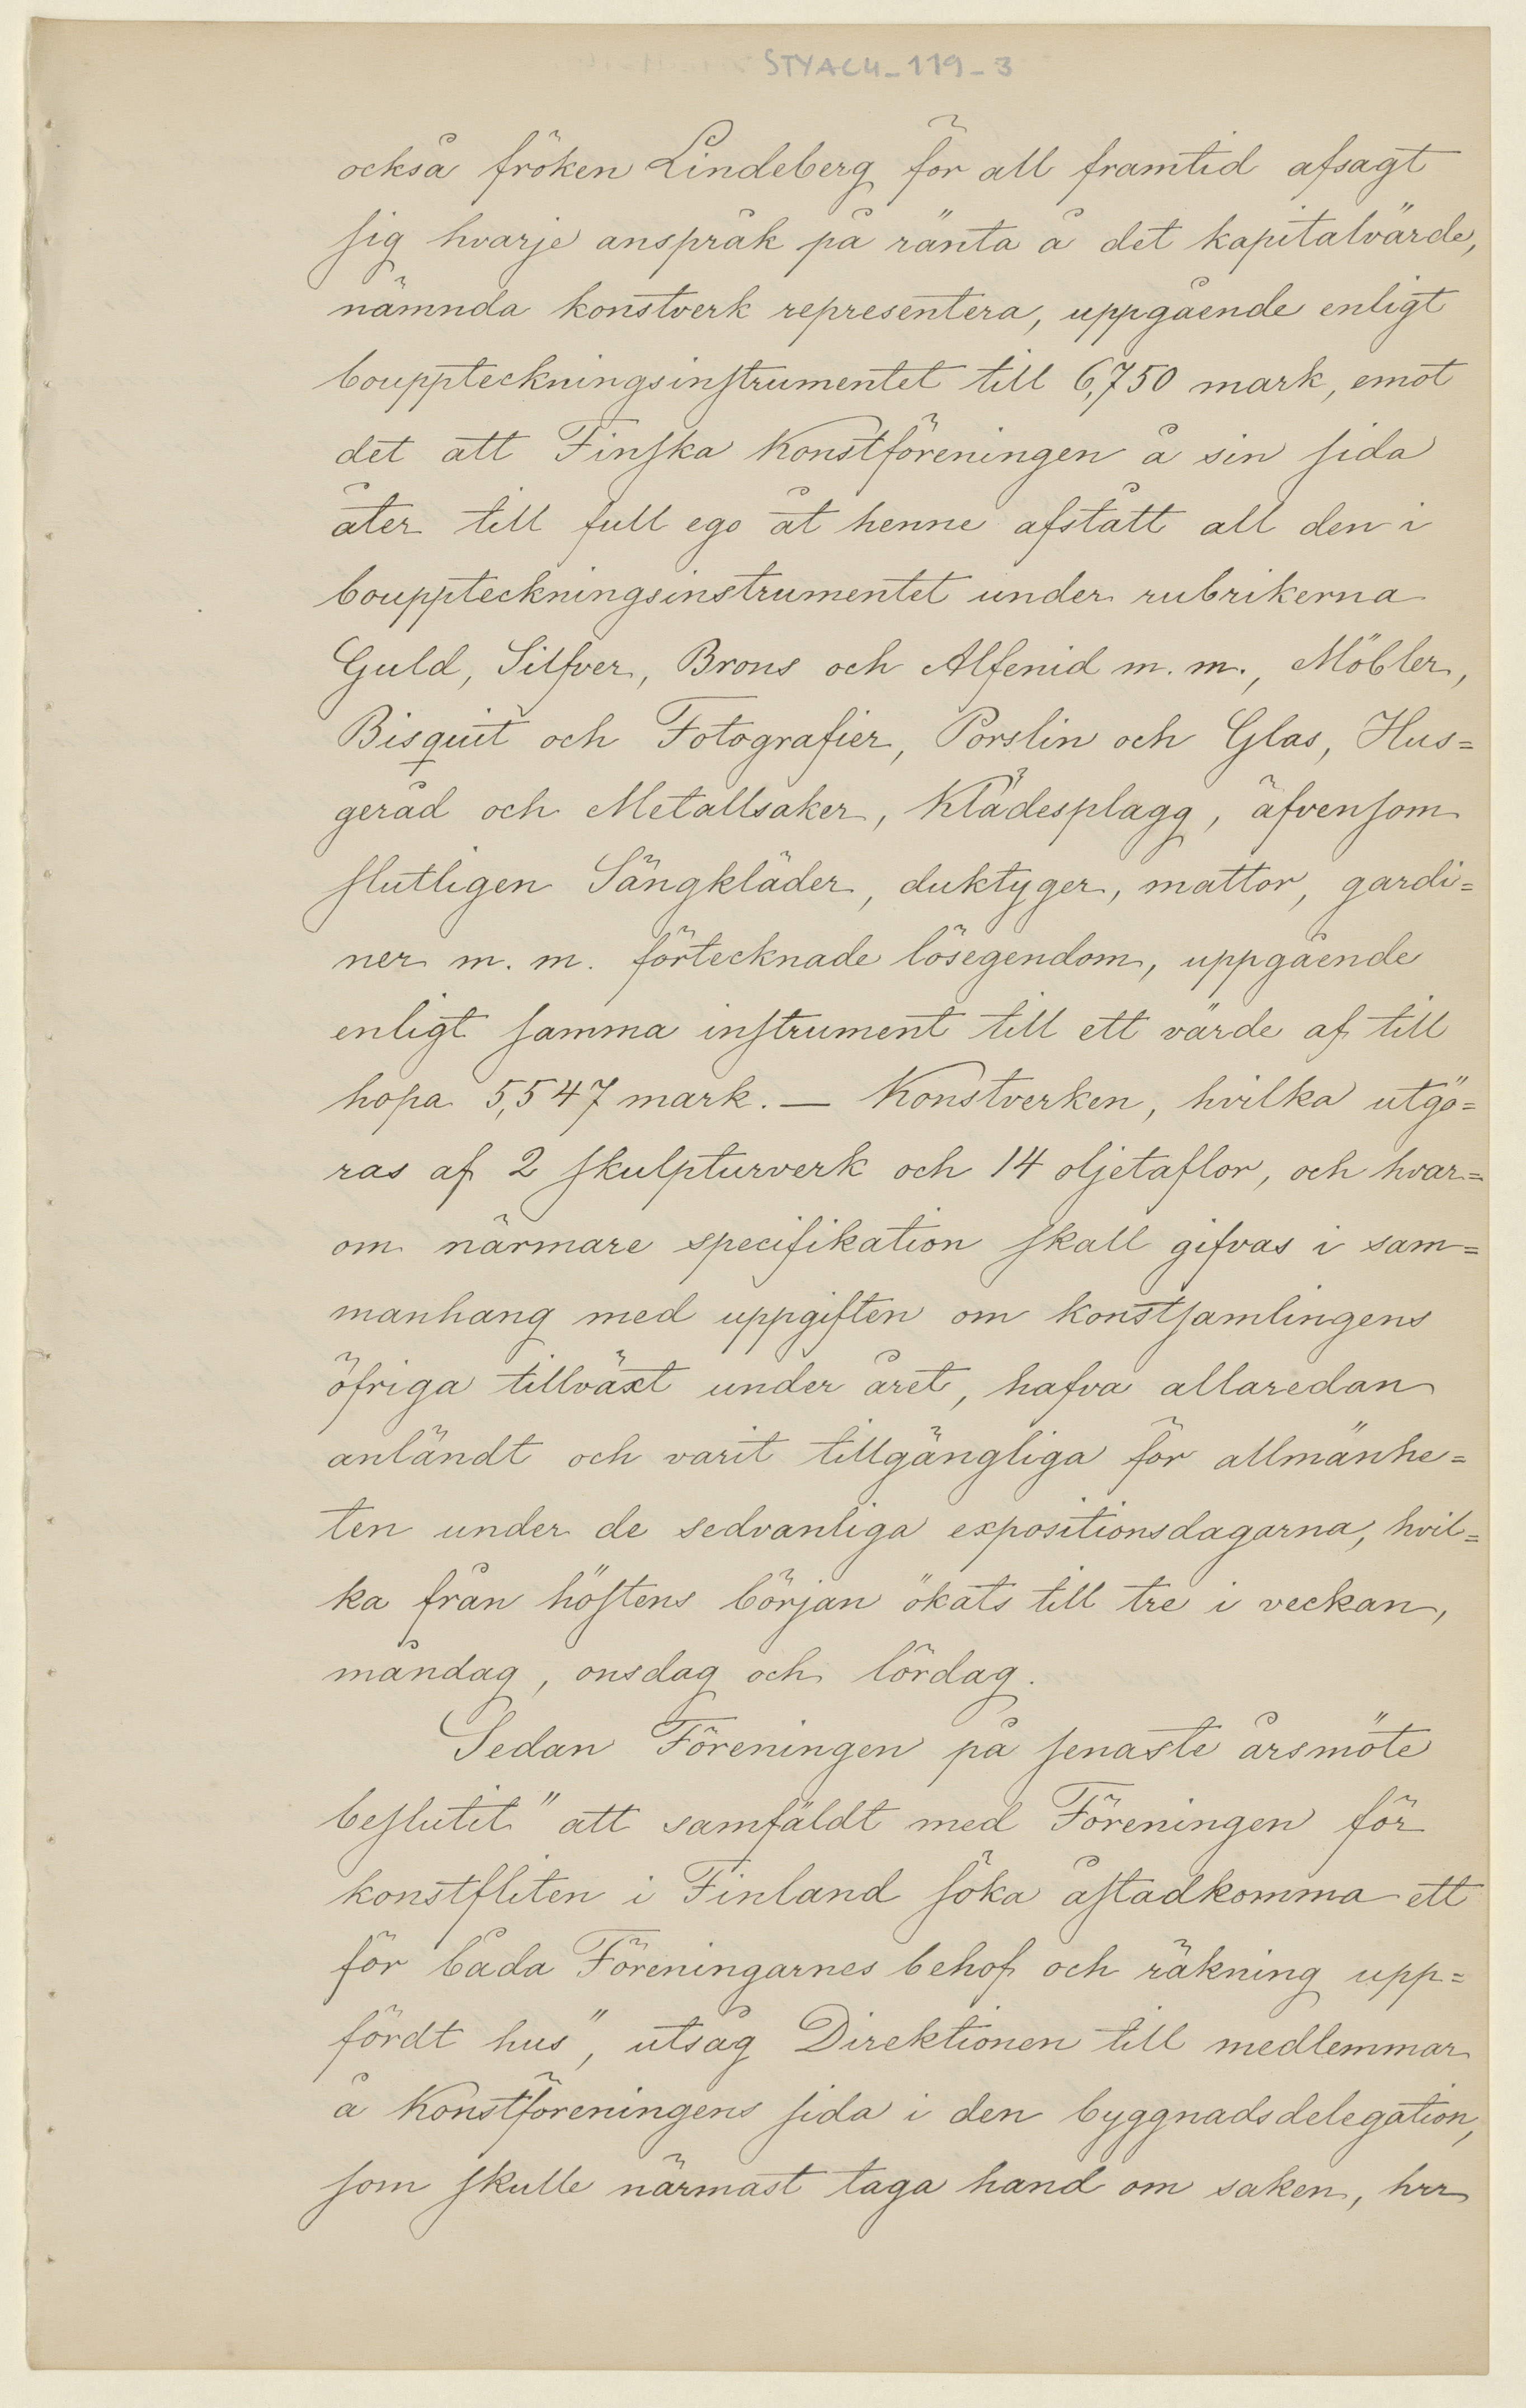 STYACU_119_3
också fröken Lindeberg för all framtid afsagt
sig hvarje anspråk på ränta å det kapitalvärde,
nämnda konstverk representera, uppgående enligt
bouppteckningsinstrumentet till 6,750 mark, emot
det att Finska Konstföreningen å sin sida
åter till full ego åt henne afstått all den i
bouppteckningsinstrumentet under rubrikerna
Guld, Silfver, Brons och Alfenid m. m., Möbler,
Bisquit och Fotografier, Porslin och Glas, Hus=
geråd och Metallsaker, Klädesplagg, äfvensom
slutligen Sängkläder, duktyger, mattor, gardi=
ner m. m. förtecknade lösegendom, uppgående
enligt samma instrument till ett värde af till
hopa 5,547 mark. — Konstverken, hvilka utgö=
ras af 2 skulpturverk och 14 oljetaflor, och hvar=
om närmare specifikation skall gifvas i sam=
manhang med uppgiften om konstsamlingens
öfriga tillväxt under året, hafva allaredan
anländt och varit tillgängliga för allmänhe=
ten under de sedvanliga expositionsdagarna, hvil=
ka från höstens början ökats till tre i veckan,
måndag, onsdag och lördag.
Sedan Föreningen på senaste årsmöte
beslutit "att samfäldt med Föreningen för
konstfliten i Finland söka åstadkomma ett
för båda Föreningarnes behof och räkning upp=
fördt hus", utsåg Direktionen till medlemmar
å Konstföreningens sida i den byggnadsdelegation,
som skulle närmast taga hand om saken, hrr